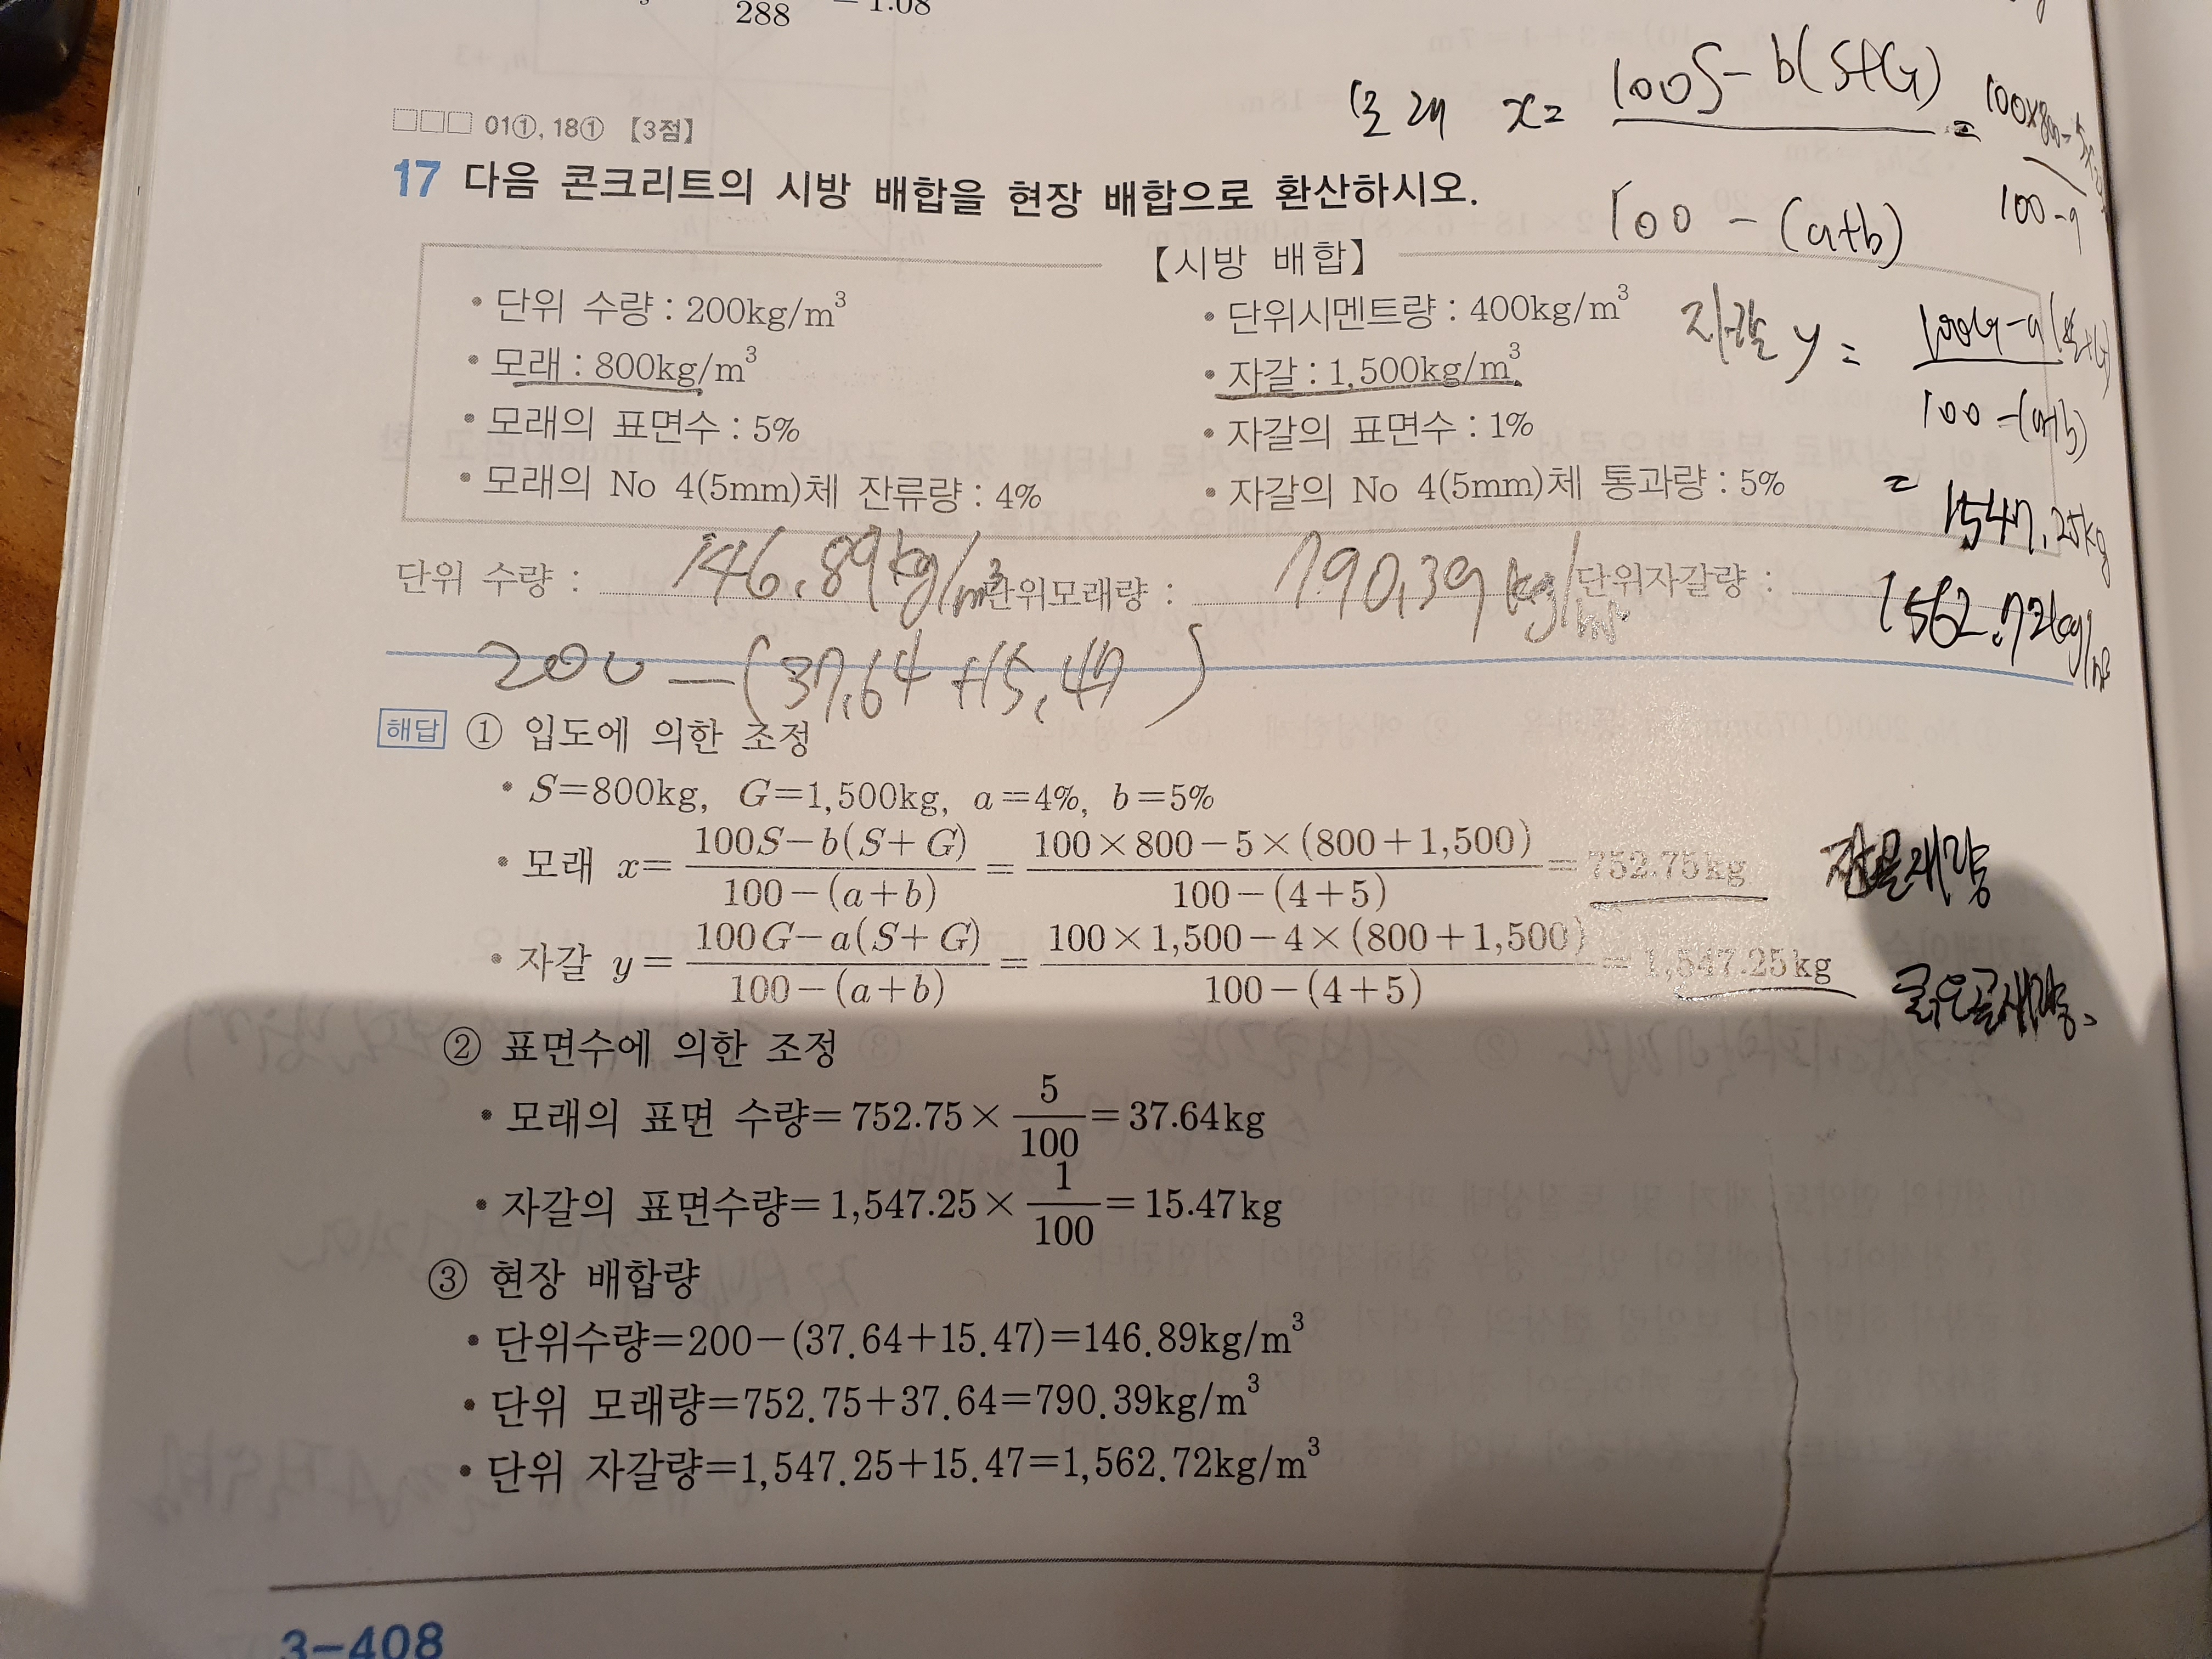 288
= 1.08
모래 x = 100S - b(S+G) =
100 - (a+b)
01①, 18① 【3점】
17 다음 콘크리트의 시방 배합을 현장 배합으로 환산하시오.
【시방 배합】
• 단위 수량 : 200kg/m³ • 단위시멘트량 : 400kg/m³
• 모래 : 800kg/m³ • 자갈 : 1,500kg/m³
• 모래의 표면수 : 5% • 자갈의 표면수 : 1%
• 모래의 No 4(5mm)체 잔류량 : 4% • 자갈의 No 4(5mm)체 통과량 : 5%
자갈 y =
100 - (a+b)
= 1547.25kg
단위 수량 : 146.89kg/m³ 단위모래량 : 790.39kg/m³ 단위자갈량 : 1562.72kg/m³
200 - (37.64 + 15.47)
해답 ① 입도에 의한 조정
• S=800kg, G=1,500kg, a=4%, b=5%
• 모래 x= 100S-b(S+G) / 100-(a+b) = 100×800-5×(800+1,500) / 100-(4+5) = 752.75kg 잔골재량
• 자갈 y= 100G-a(S+G) / 100-(a+b) = 100×1,500-4×(800+1,500) / 100-(4+5) = 1,547.25kg 굵은골재량
② 표면수에 의한 조정
• 모래의 표면 수량= 752.75× 5/100 = 37.64kg
• 자갈의 표면수량= 1,547.25× 1/100 = 15.47kg
③ 현장 배합량
• 단위수량=200-(37.64+15.47)=146.89kg/m³
• 단위 모래량=752.75+37.64=790.39kg/m³
• 단위 자갈량=1,547.25+15.47=1,562.72kg/m³
3-408